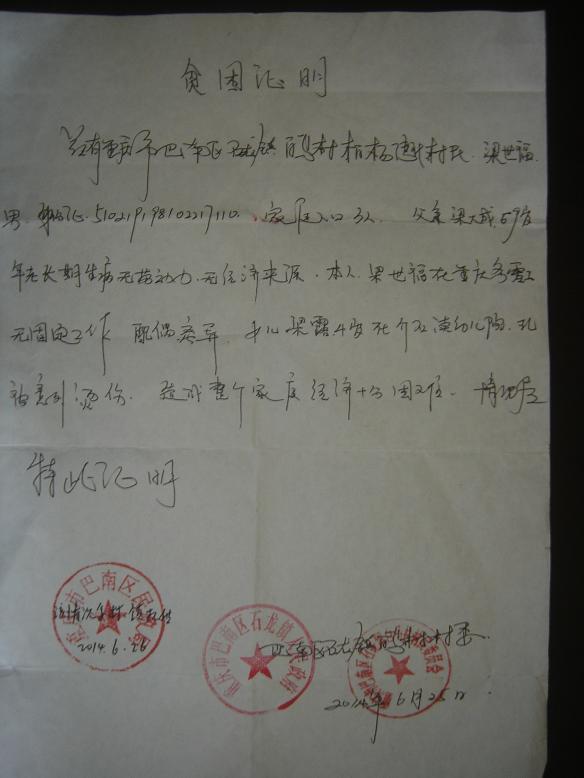 贫困证明
兹有重庆市巴南区石龙镇 村柏杨 村民.梁世福.
男.身份证.510219198102217110.家庭人口3人.父亲梁大成.59岁
年老长期生病无劳动力.无经济来源.本人.梁世福在重庆务工
无固定工作 配偶离异 女儿梁露4岁在 读幼儿园.现
被意外烫伤.造成整个家庭经济十分困难.情况属实
特此证明
重庆市巴南区民政局
2014.6.26
重庆市巴南区石龙镇人民政府
巴南区石龙镇 村委.
2014年6月25日